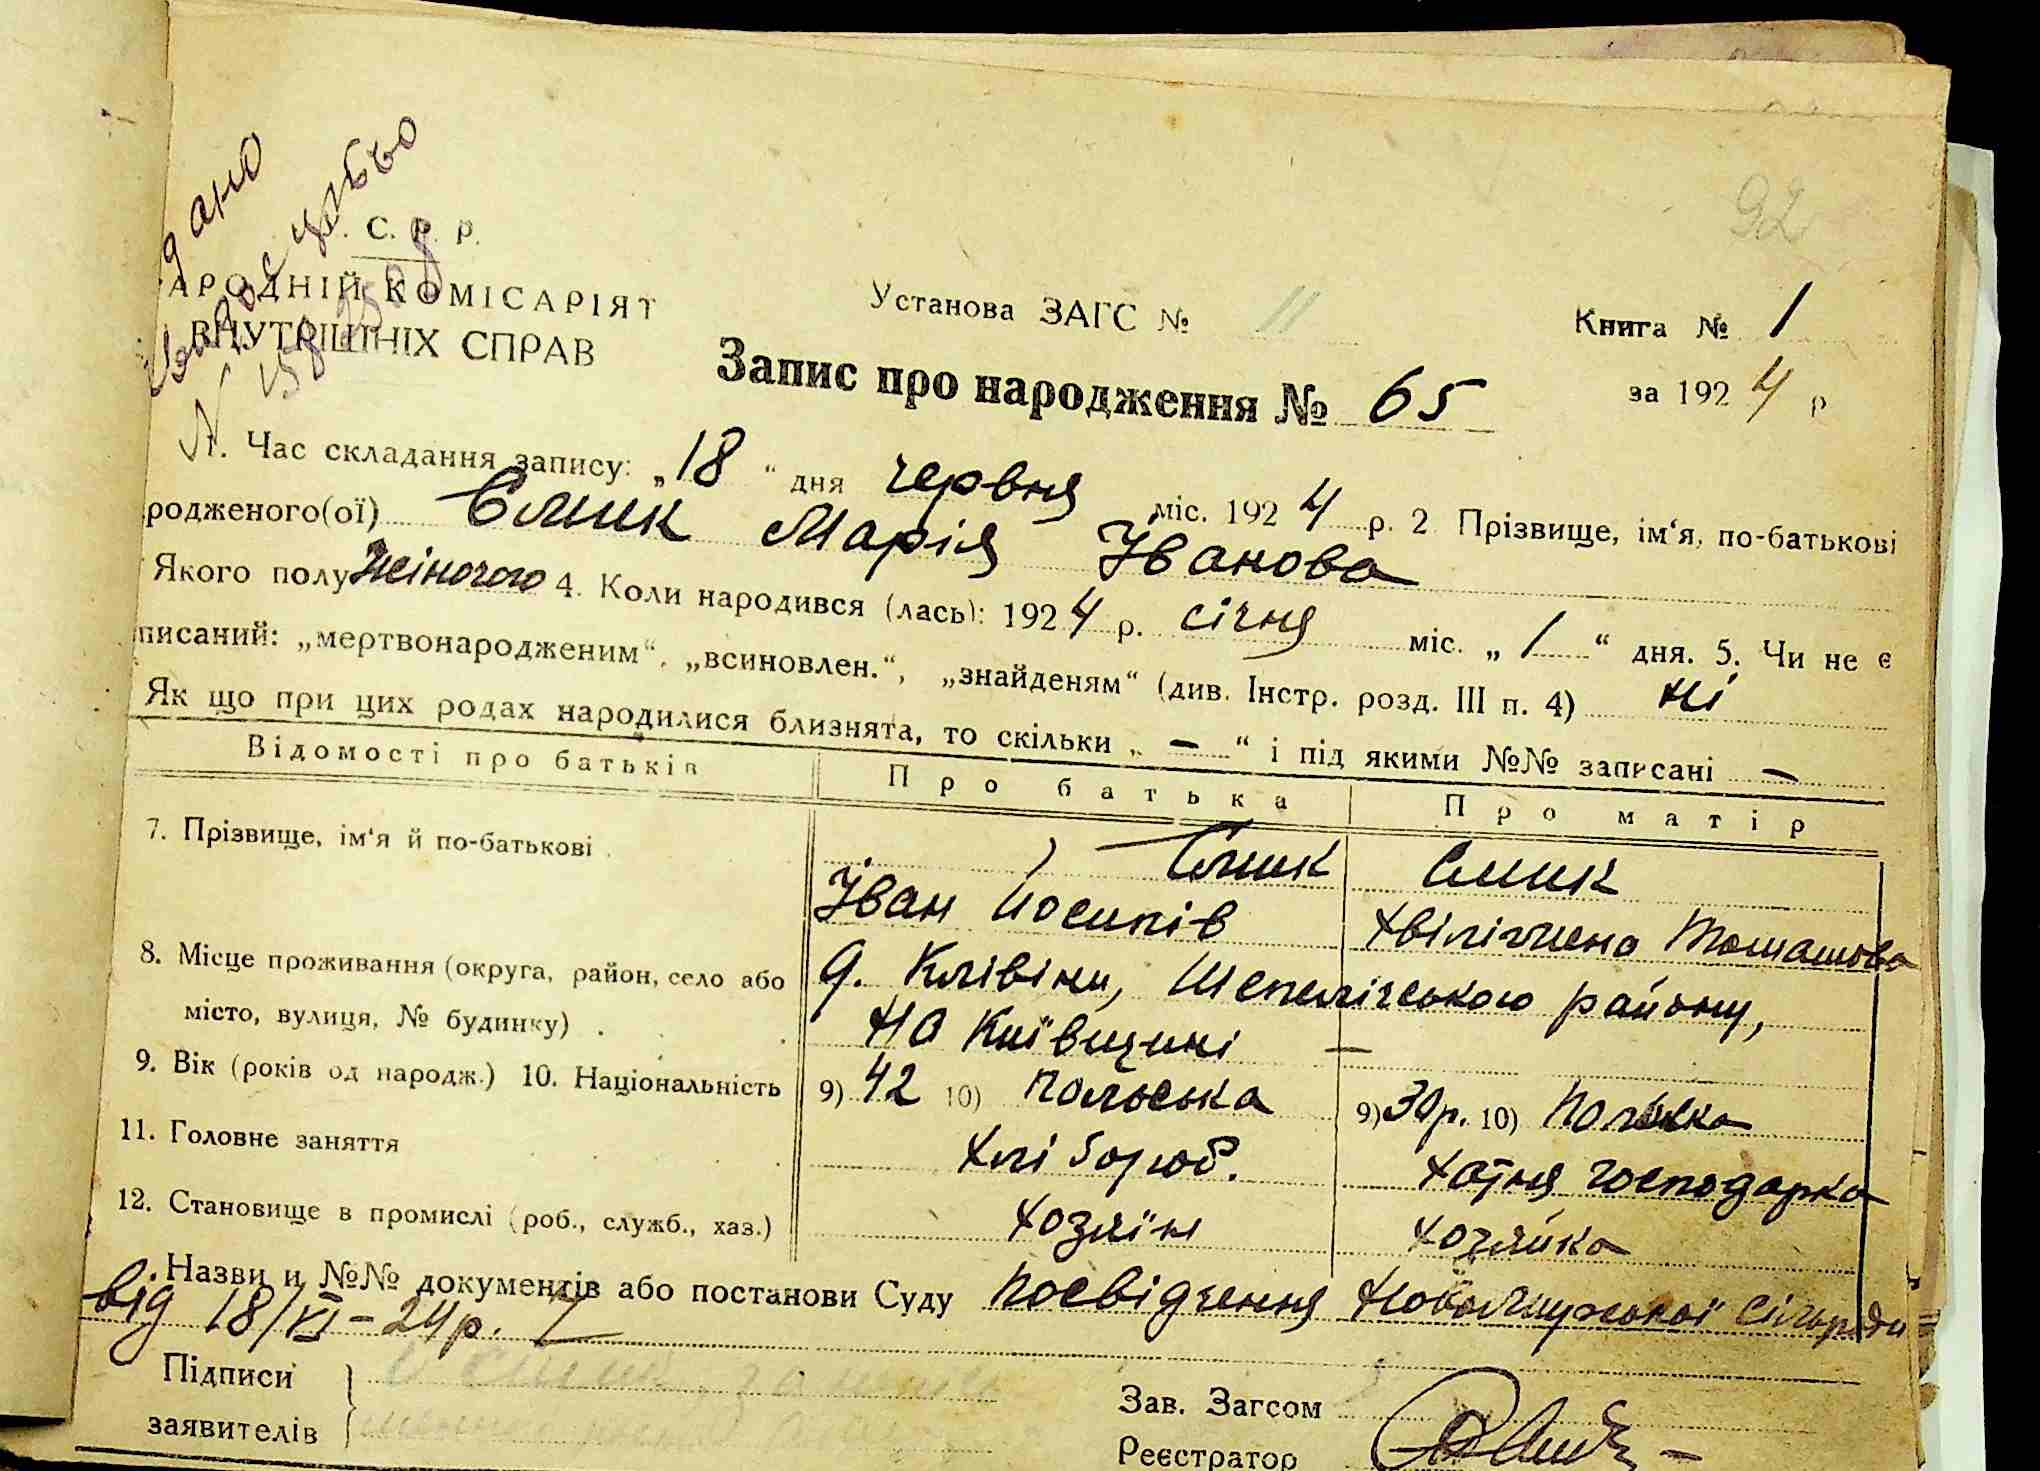 дано
С. Р. Р.
АРОДНІЙ КОМІСАРІЯТ
ВНУТРІШНІХ СПРАВ
92
Установа ЗАГС № 11
Книга № 1
за 1924 р
Запис про народження № 65
1. Час складання запису: „18“ дня червня міс. 1924 р. 2 Прізвище, ім‘я, по-батькові
родженого(ої) Єлик Марія Іванова
Якого полу жіночого 4. Коли народився (лась): 1924 р. січня міс. „1“ дня. 5. Чи не є
писаний: „мертвонародженим“, „всиновлен.“, „знайденям“ (див. Інстр. розд. III п. 4) ні
Як що при цих родах народилися близнята, то скільки „ — “ і під якими №№ записані —
Відомості про батьків Про батька Про матір
7. Прізвище, ім‘я й по-батькові Єлик Єлик
Іван Йосипів Томашова
8. Місце проживання (округа, район, село або д. Клівіни, Шепелічського району,
місто, вулиця, № будинку) на Київщині —
9. Вік (років од народж.) 10. Національність 9) 42 10) польська 9) 30р. 10) полька
11. Головне заняття хлібороб. хатня господарка
12. Становище в промислі (роб., служб., хаз.) хозяїн хозяйка
Назви и №№ документів або постанови Суду посвідчення сільради
від 18/VI – 24р.
Підписи
заявителів
Зав. Загсом
Реєстратор